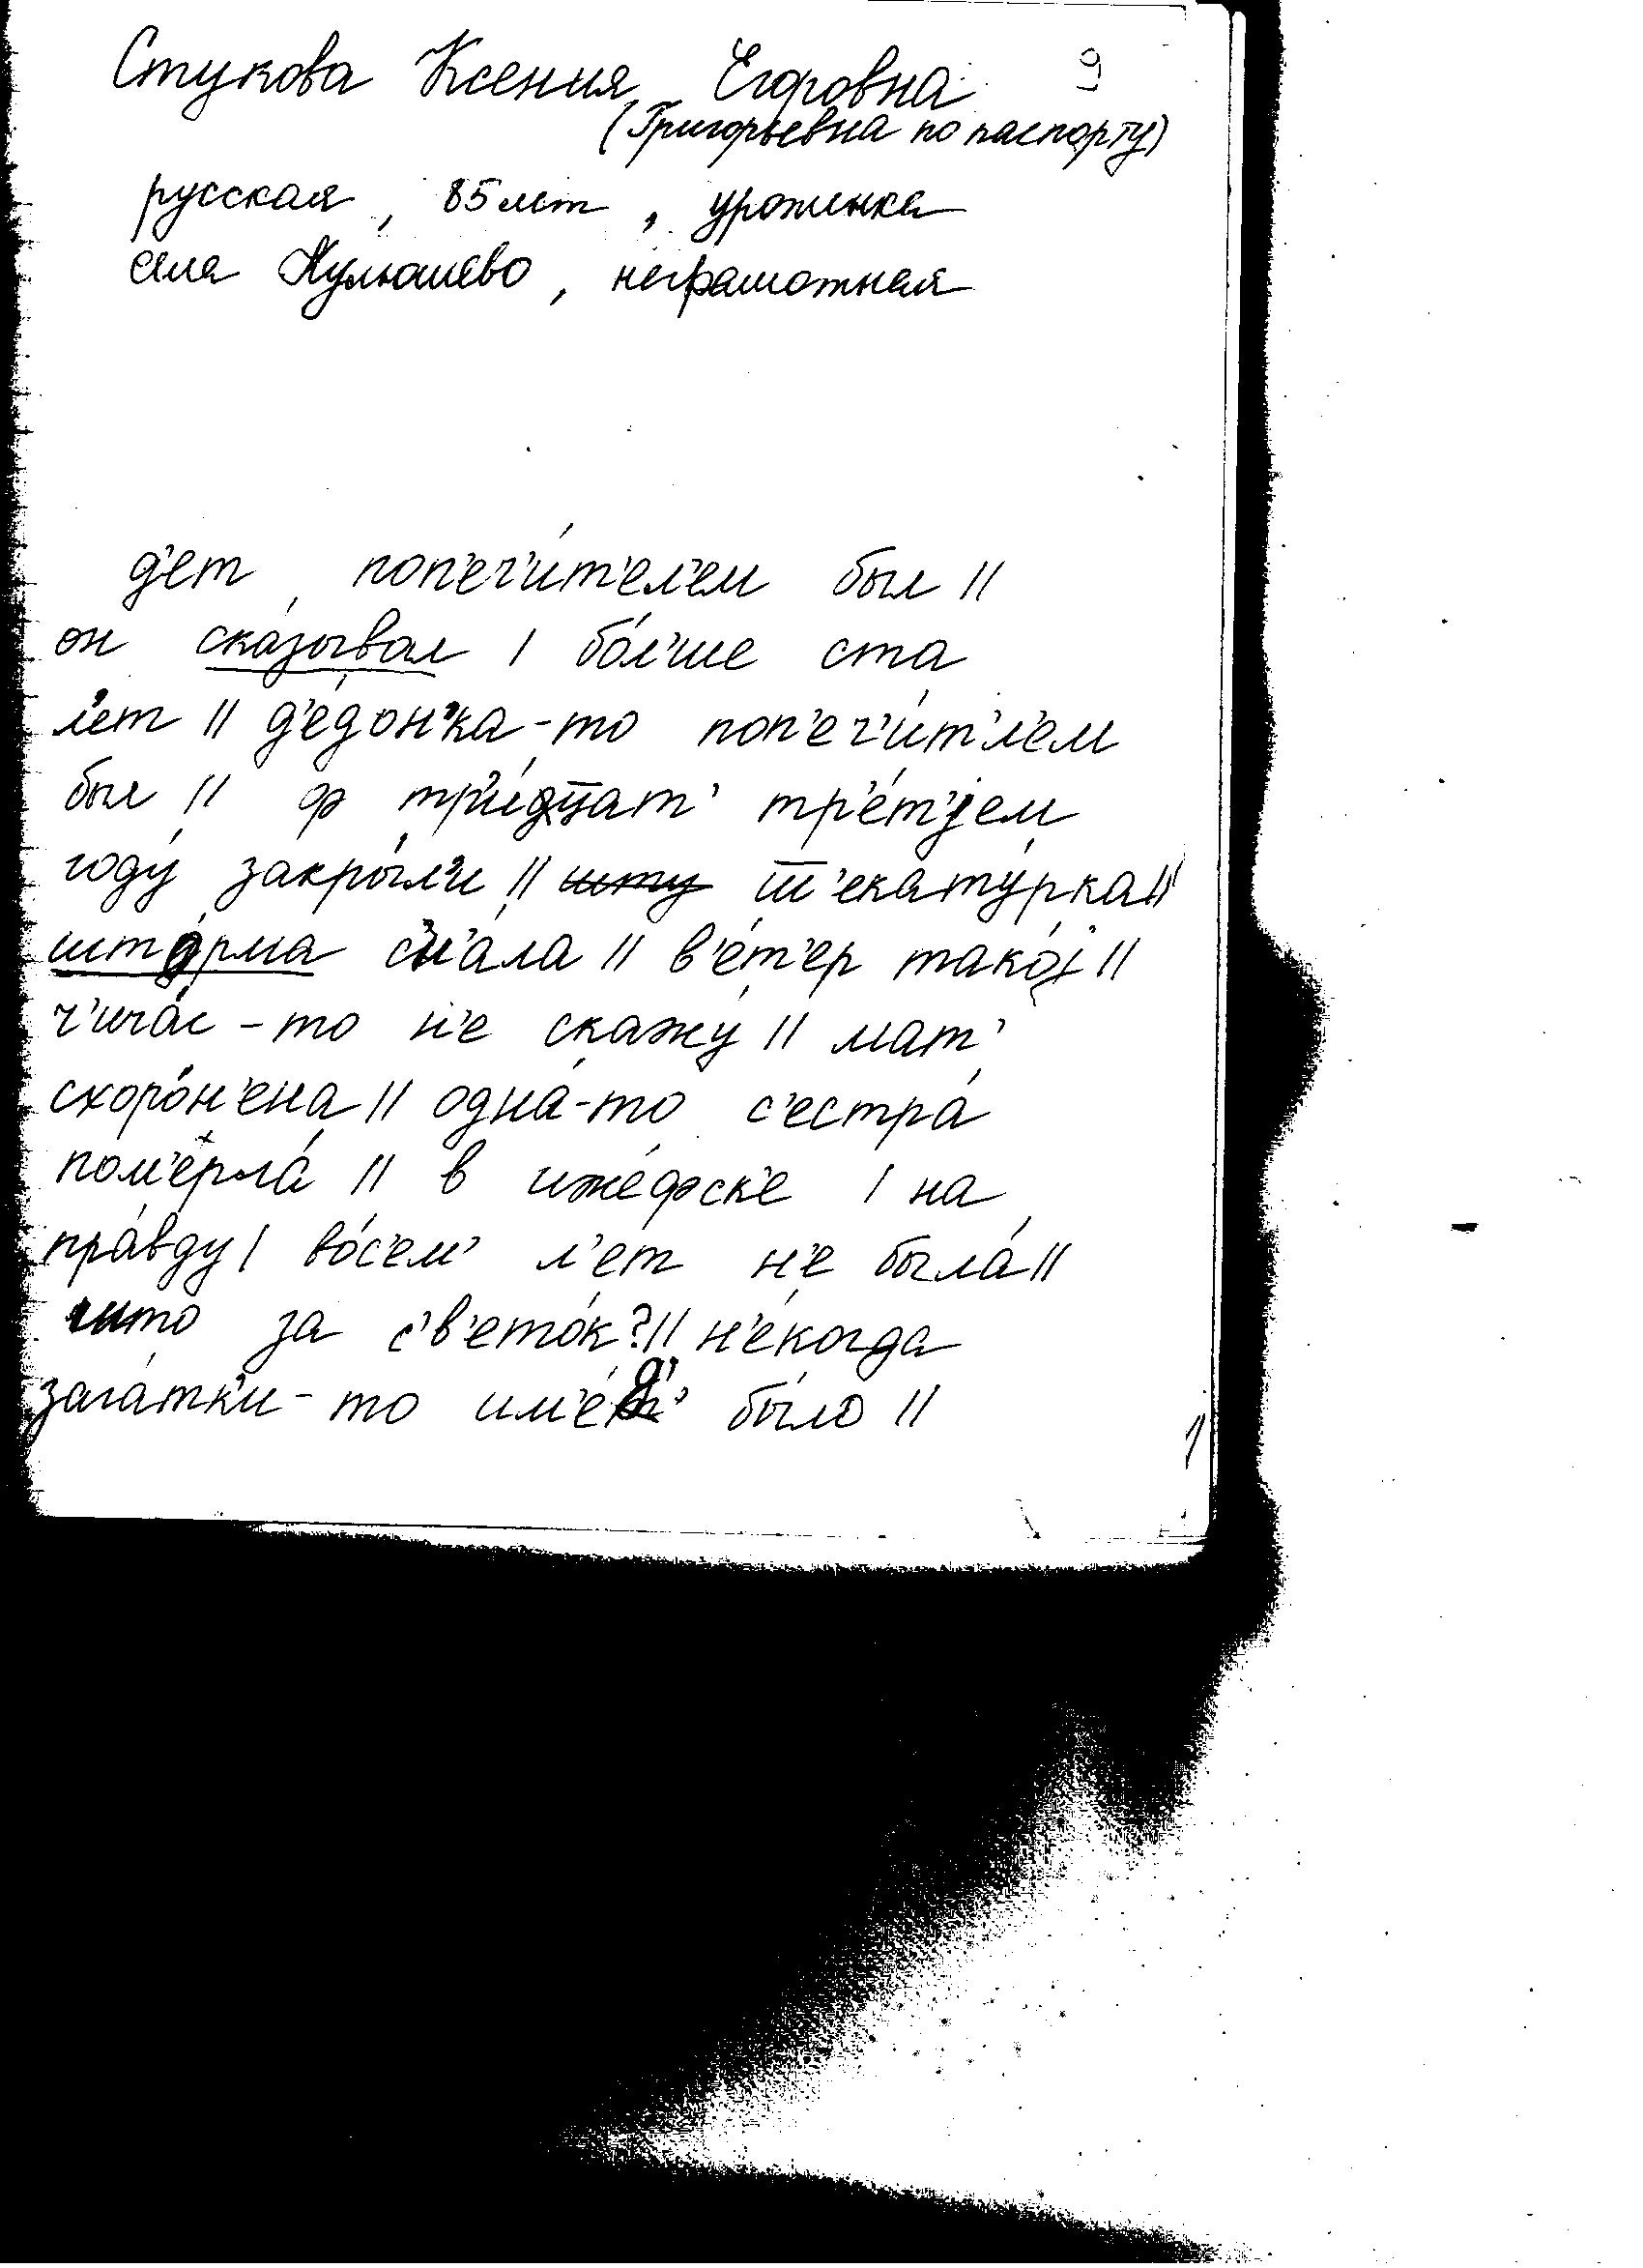 Стукова Ксения Егоровна 9
(Григорьевна по паспорту)
русская, 85 лет, уроженка
села Кулюшево, неграмотная
д'ет, поп'еч'и́т'ел'ем был ||
он ска́зывал | бо́л'ше ста
л'ет || д'е́дон'ка-то поп'еч'и́т'л'ем
был || ф тр'и́цат' тр'е́т'jем
году́ закры́л'и || шту ш̅'екату́рка ||
што́рма сн'ала || в'е́т'ер тако́j ||
ч'ича́с-то н'е скажу́ || мат'
схоро́н'ена || одна́-то с'естра́
пом'ерла́ || в иже́фск'е | на
пра́вду | во́с'ем' л'ет н'е была́ ||
што за с'в'ето́к? || н'е́когда
зага́тк'и-то им'е́ бы́ло ||